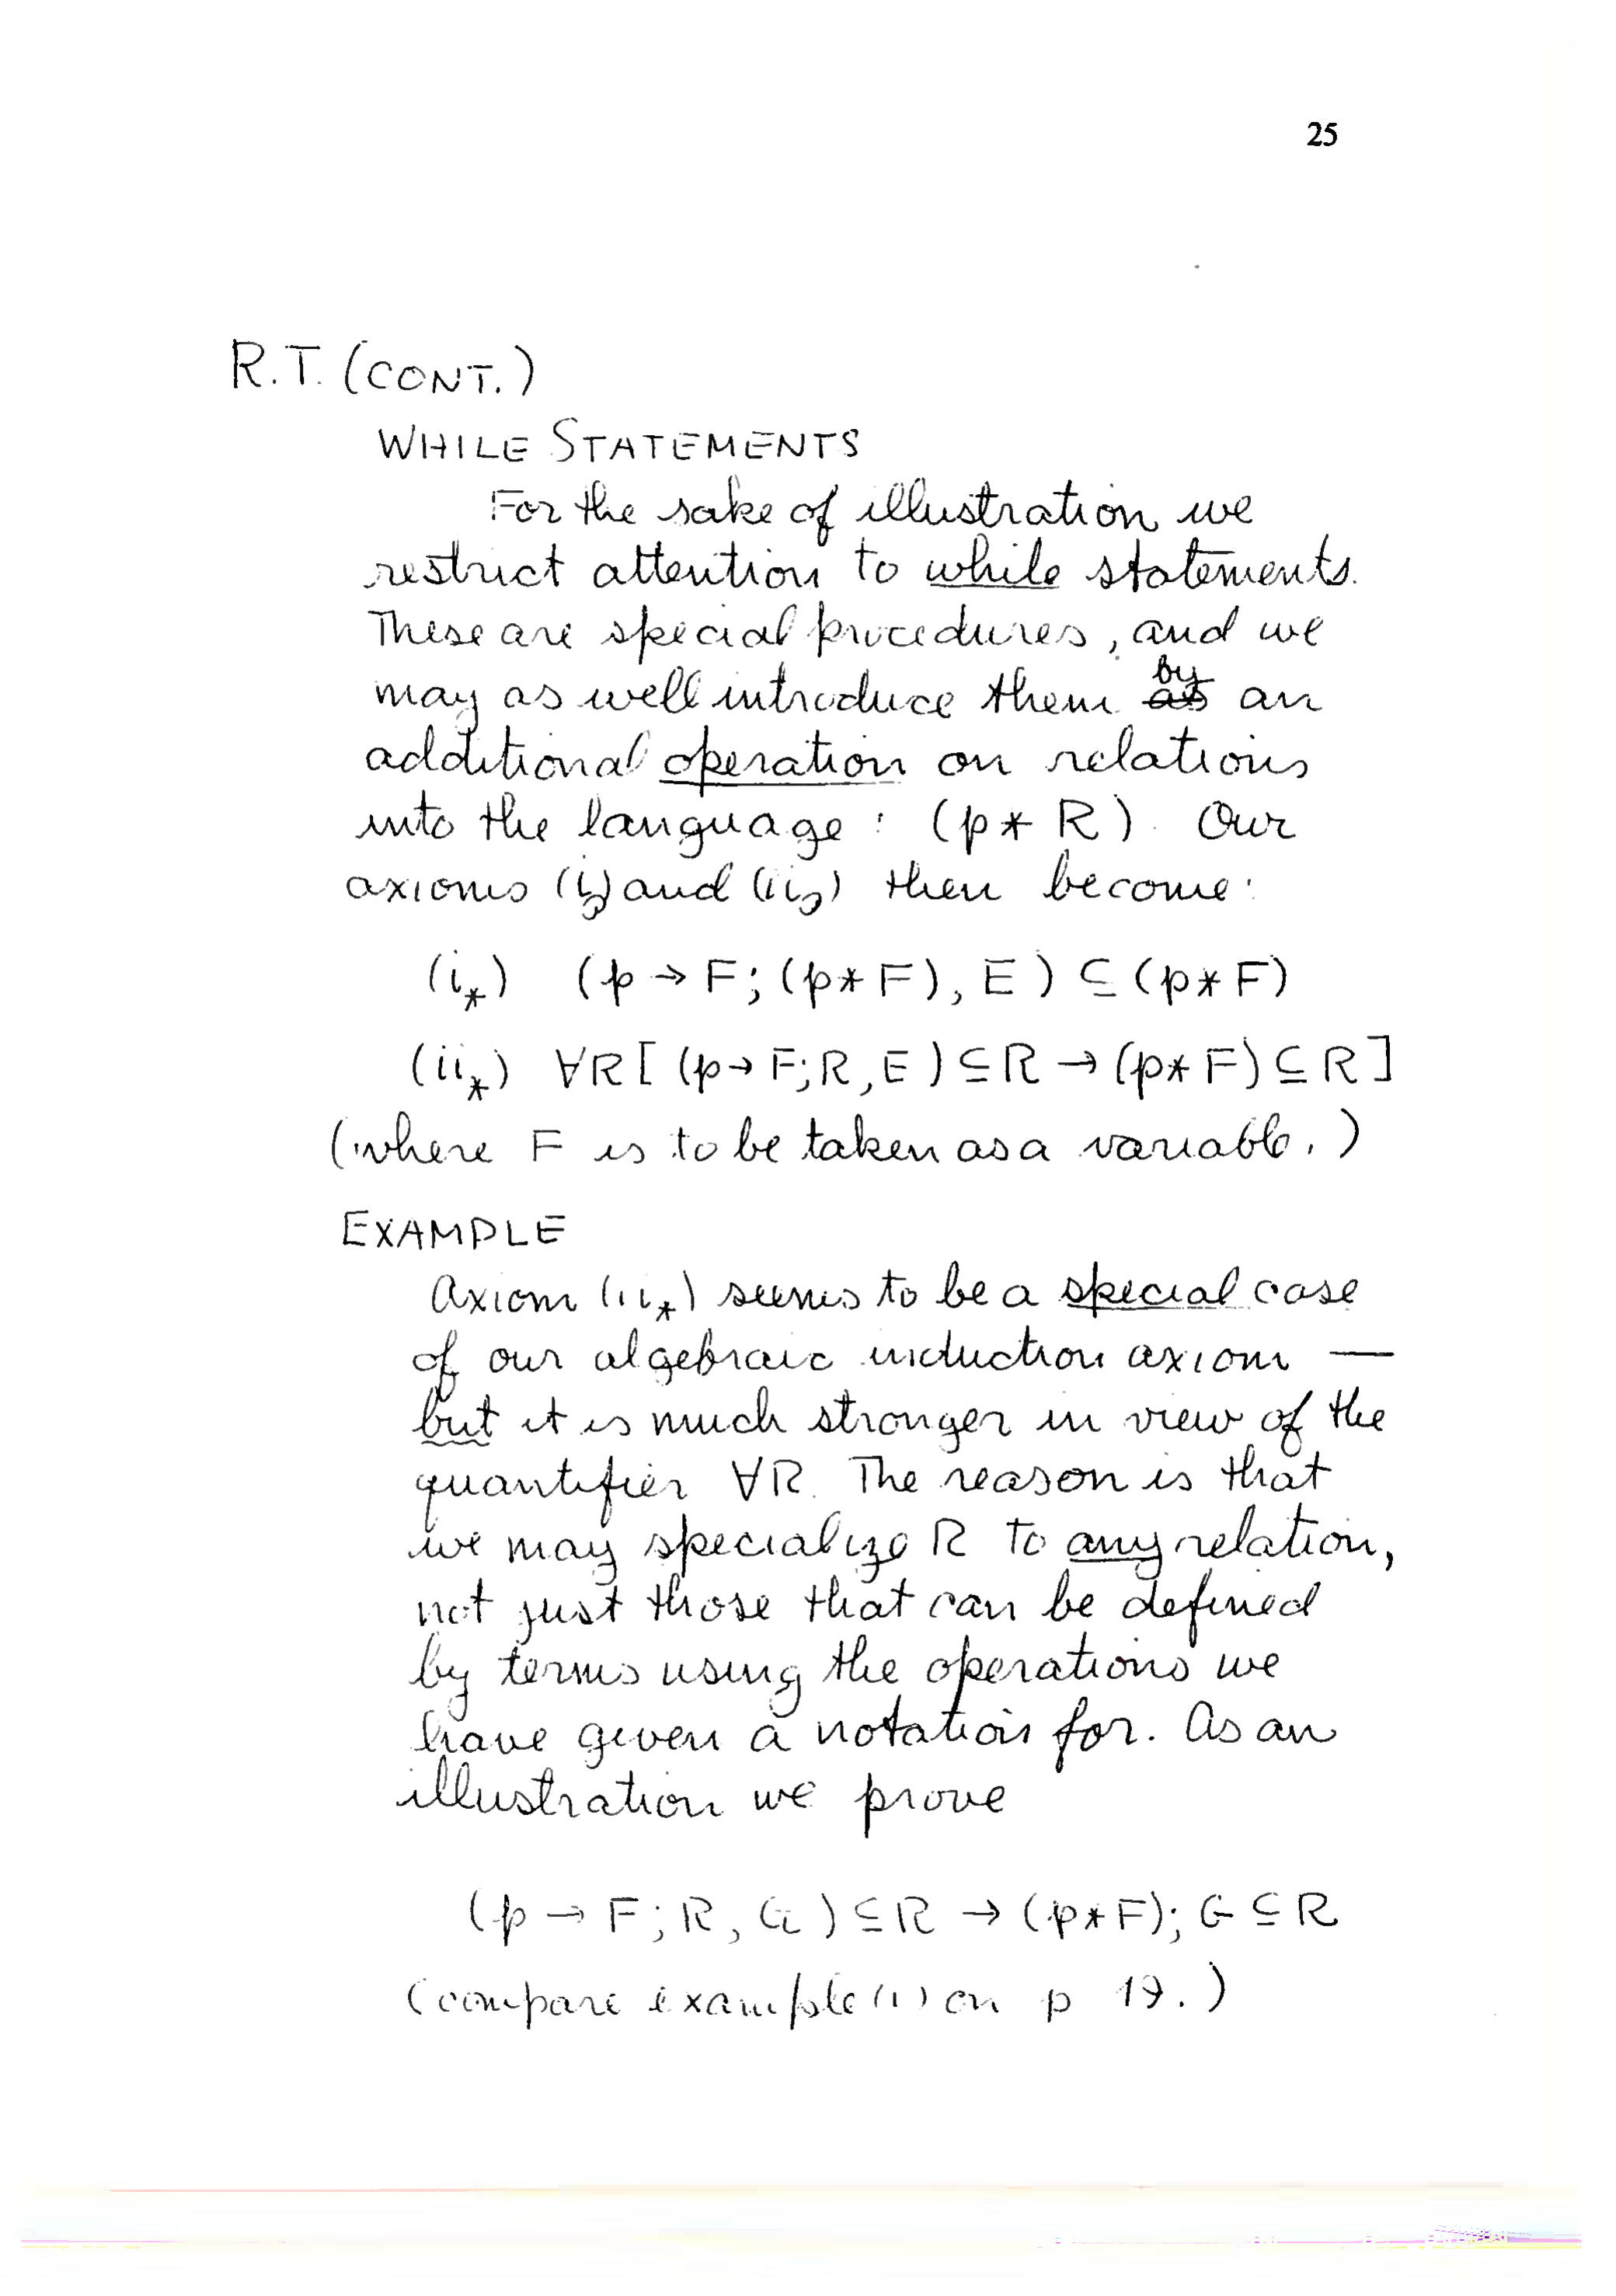 25
R.T. (CONT.)
WHILE STATEMENTS
For the sake of illustration we
restrict attention to while statements.
These are special procedures, and we
may as well introduce them as by an
additional operation on relations
into the language: (p * R). Our
axioms (i₃) and (ii₃) then become:
(i*) (p → F; (p * F), E) ⊆ (p * F)
(ii*) ∀R[(p → F; R, E) ⊆ R → (p * F) ⊆ R]
(where F is to be taken as a variable.)
EXAMPLE
Axiom (ii*) seems to be a special case
of our algebraic induction axiom —
but it is much stronger in view of the
quantifier ∀R. The reason is that
we may specialize R to any relation,
not just those that can be defined
by terms using the operations we
have given a notation for. As an
illustration we prove
(p → F; R, G) ⊆ R → (p * F); G ⊆ R
(compare example (1) on p 19.)